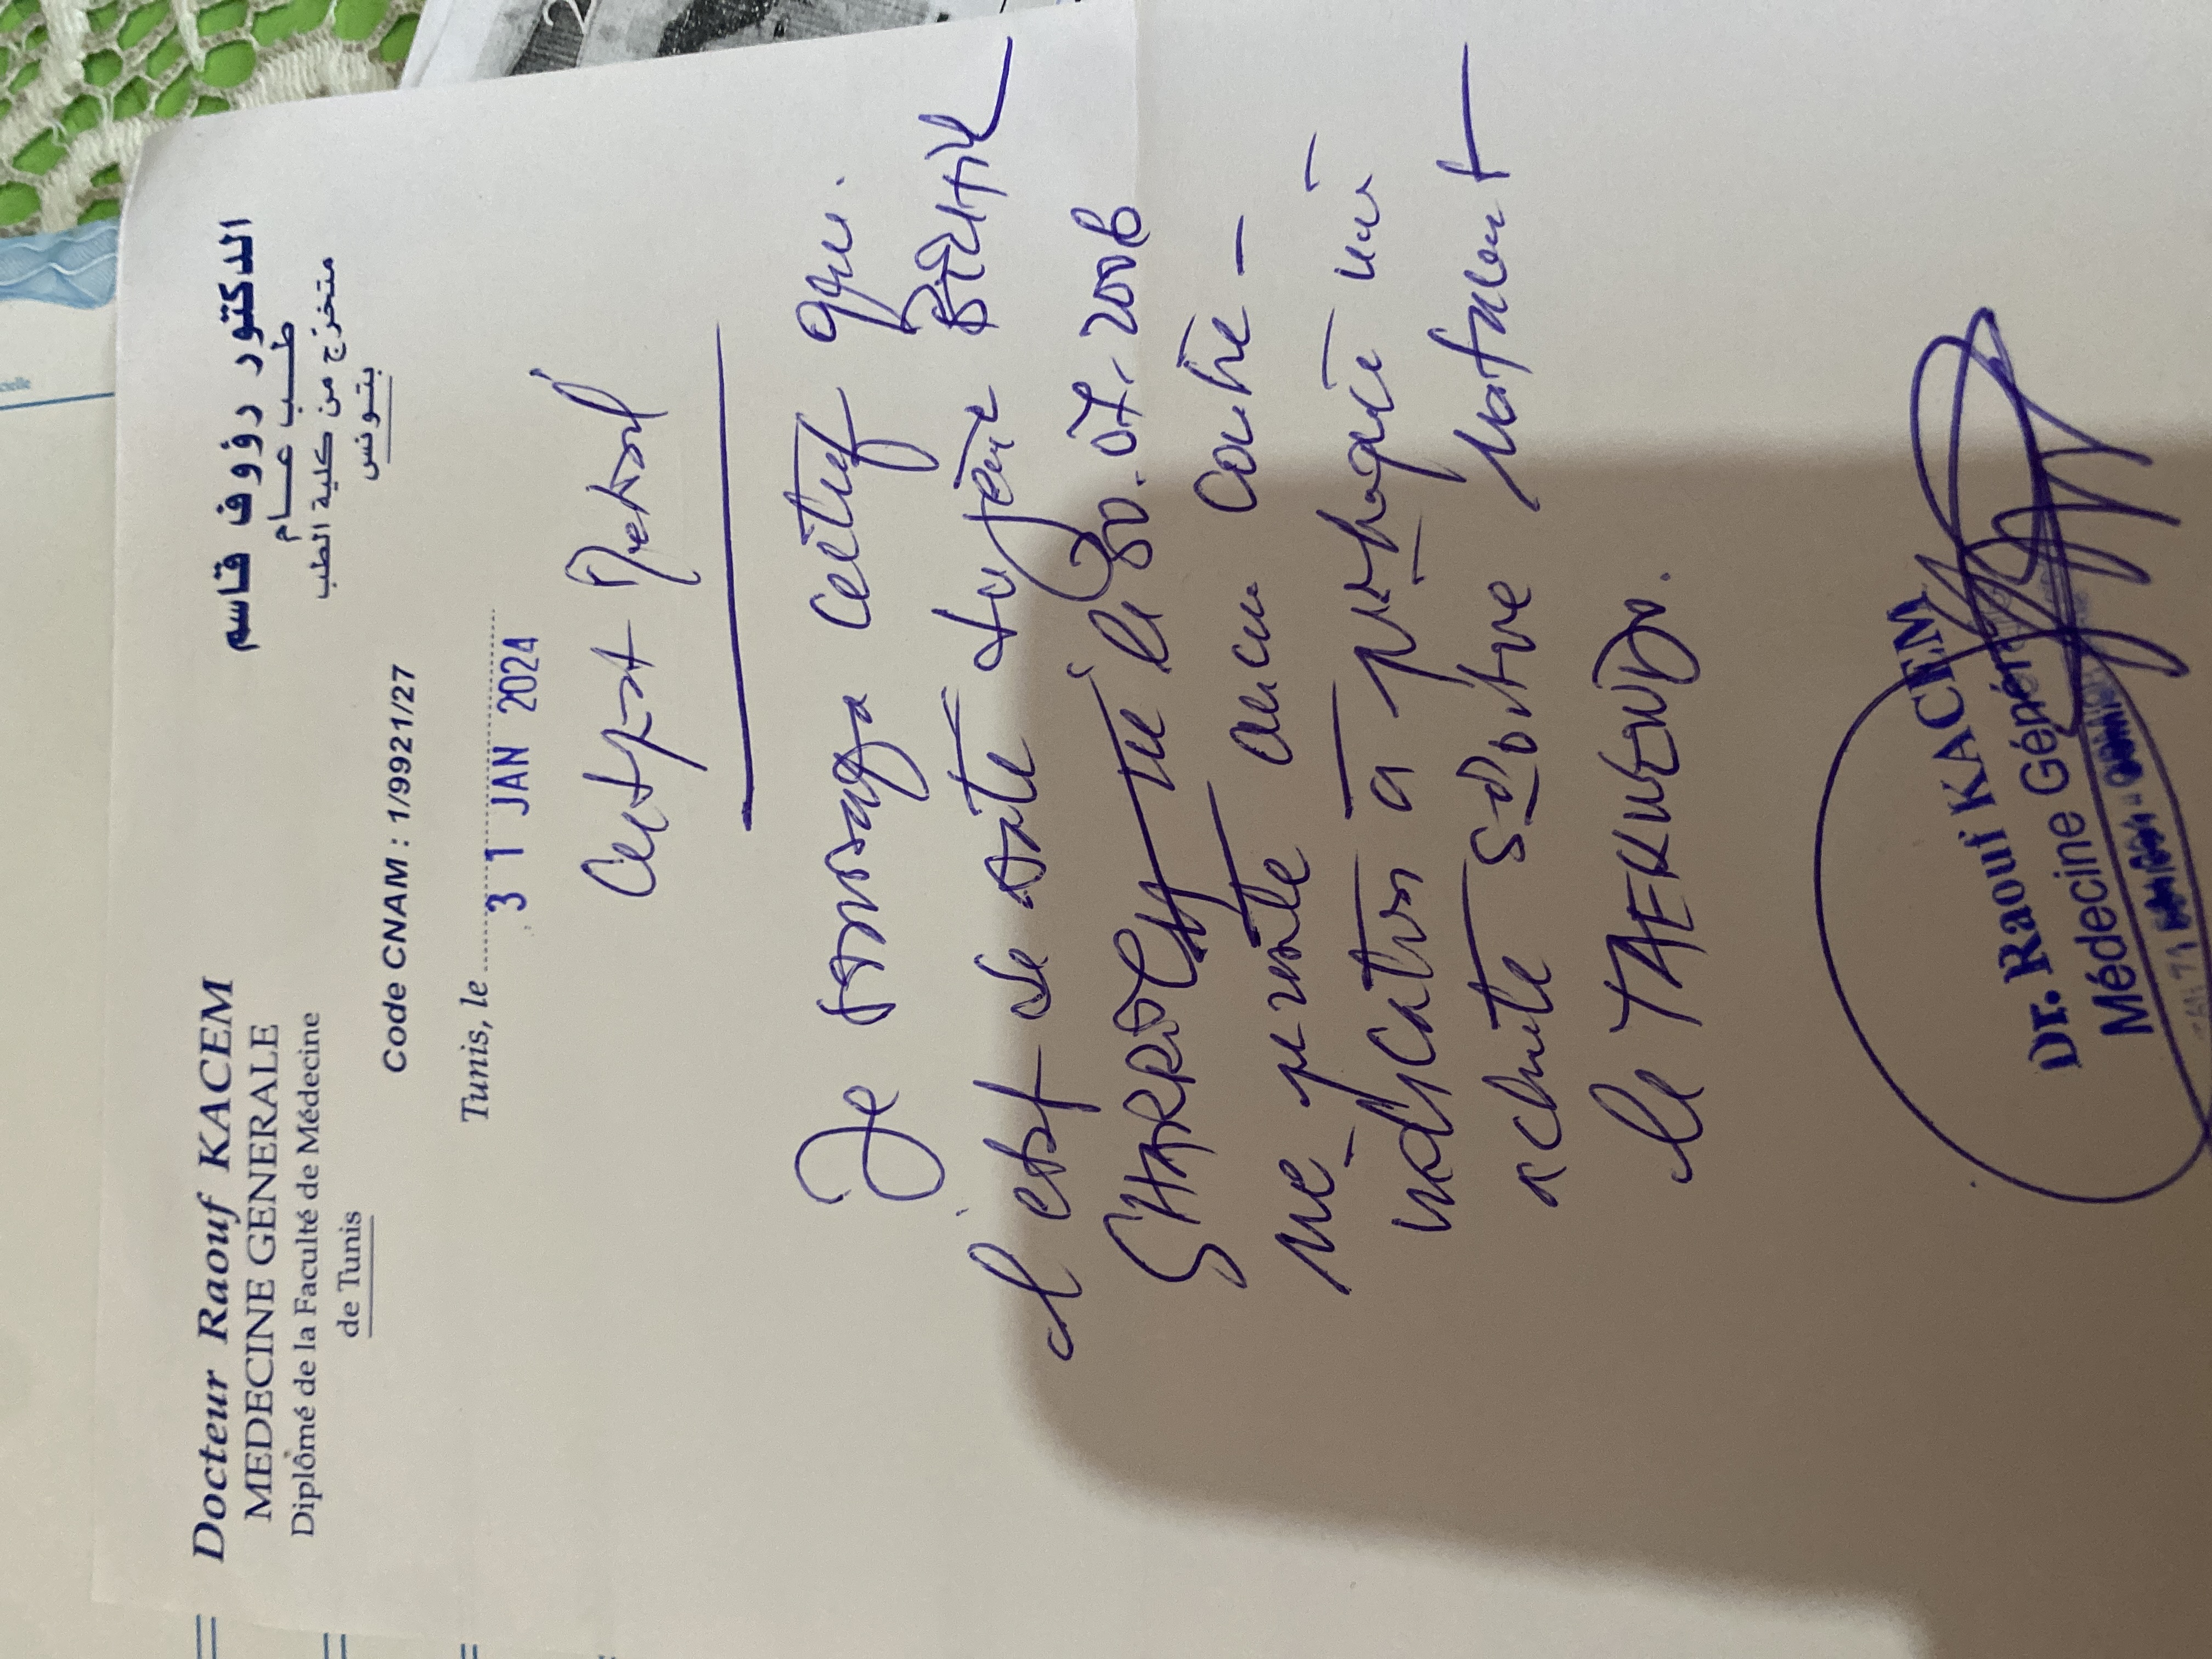 Docteur Raouf KACEM
MEDECINE GENERALE
Diplômé de la Faculté de Médecine
de Tunis
الدكتور رؤوف قاسم
طب عام
متخرج من كلية الطب
بتونس
Code CNAM : 1/9921/27
Tunis, le 31 JAN 2024
Certificat Médical
Je soussigné certifie que
l'état de santé du jeune
né le 30.07.2006
ne présente aucune contre-
indication à pratiquer une
activité sportive notamment
le TAEKWENDO.
Dr. Raouf KACEM
Médecine Générale